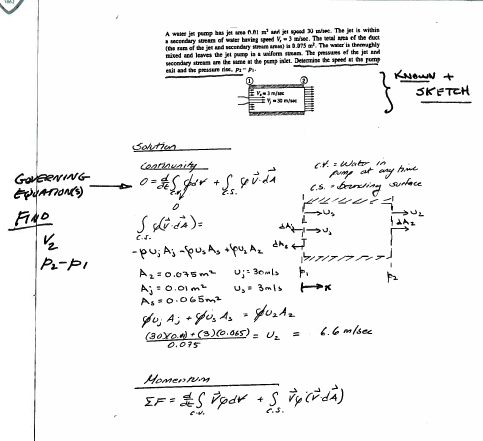 A water jet pump has jet area 0.01 m² and jet speed 30 m/sec. The jet is within
a secondary stream of water having speed Vs = 3 m/sec. The total area of the duct
(the sum of the jet and secondary stream areas) is 0.075 m². The water is thoroughly
mixed and leaves the jet pump in a uniform stream. The pressures of the jet and
secondary stream are the same at the pump inlet. Determine the speed at the pump
exit and the pressure rise, p₂ − p₁.
KNOWN +
SKETCH
1 2
Vs = 3 m/sec
Vj = 30 m/sec
Solution
Continuity
GOVERNING
EQUATION(S)
0 = d/dt ∫c.v. ρdV + ∫c.s. ρV⃗·dA⃗
0
C.V. = Water in
pump at any time
C.S. = bounding surface
FIND
V₂
P₂-P₁
∫c.s. ρ(V⃗·dA⃗) =
-ρUjAj - ρUsAs + ρU₂A₂
A₂ = 0.075m² Uj = 30m/s
Aj = 0.01m² Us = 3m/s
As = 0.065m²
dAj
dAs
Us
Uj
U₂
dA₂
P₁
P₂
x
ρUjAj + ρUsAs = ρU₂A₂
(30)(0.01) + (3)(0.065) / 0.075 = U₂ = 6.6 m/sec
Momentum
ΣF = d/dt ∫c.v. V⃗ρdV + ∫c.s. V⃗ρ(V⃗·dA⃗)